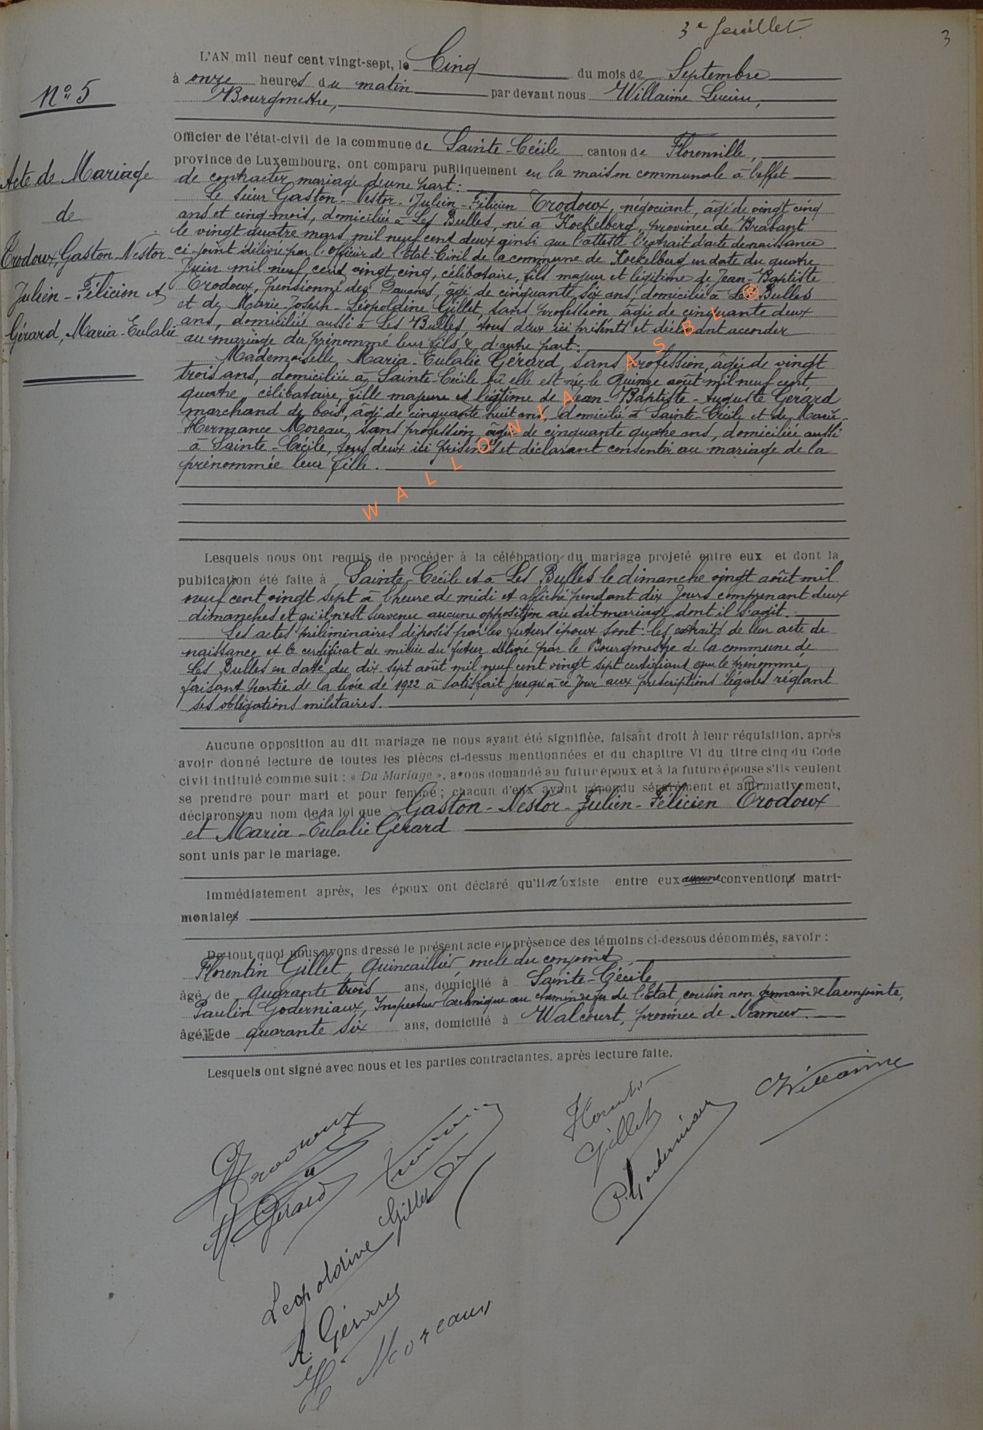 3e feuillet.
3
N° 5
Acte de Mariage
de
Trodoux, Gaston Nestor
Julien-Félicien et
Gérard, Maria-Eulalie
L'AN mil neuf cent vingt-sept, le Cinq du mois de Septembre
à onze heures du matin par devant nous Willaime Lucien,
Bourgmestre,
Officier de l'état-civil de la commune de Sainte-Cécile canton de Florenville,
province de Luxembourg, ont comparu puBliquement en la maison communale à l'effet
de contracter mariage d'une part:
Le sieur Gaston-Nestor-Julien-Félicien Trodoux, négociant, âgé de vingt cinq
ans et cinq mois, domicilié à Les Bulles, né à Koekelberg, province de Brabant
le vingt quatre mars mil neuf cent deux ainsi que l'atteste l'extrait d'acte de naissance
ci-joint délivré par l'officier de l'Etat-Civil de la commune de Koekelberg en date du quatre
Juin mil neuf cent vingt cinq, célibataire, fils majeur et légitime de Jean-Baptiste
Trodoux, pensionné des Douanes, âgé de cinquante six ans, domicilié à Les Bulles
et de Marie-Joseph-Léopoldine Gillet, sans profession âgée de cinquante deux
ans, domiciliés aussi à Les Bulles, tous deux ici présents et déclarant accorder
au mariage du prénommé leur fils & d'autre part:
Mademoiselle, Maria-Eulalie Gérard, sans profession, âgée de vingt
trois ans, domiciliée à Sainte-Cécile où elle est née le quinze août mil neuf cent
quatre, célibataire, fille majeure et légitime de Jean-Baptiste-Auguste Gérard
marchand de bois, âgé de cinquante huit ans, domicilié à Sainte-Cécile et de Marie-
Hermance Moreau, sans profession âgée de cinquante quatre ans, domiciliée aussi
à Sainte-Cécile, tous deux ici présents et déclarant consenter au mariage de la
prénommée leur fille.
WALLONIA ASBL ®
Lesquels nous ont requis de procéder à la célébration du mariage projeté entre eux et dont la
publication été faite à Sainte-Cécile et à Les Bulles le dimanche vingt août mil
neuf cent vingt sept à l'heure de midi et affiché pendant dix jours comprenant deux
dimanches et qu'il n'est survenu aucune opposition au dit mariage dont il s'agit.
Les actes préliminaires déposés par les futurs époux sont: les extraits de leur acte de
naissance et le certificat de milice du futur délivré par le Bourgmestre de la commune de
Les Bulles en date du dix-sept août mil neuf cent vingt sept certifiant que le prénommé
faisant partie de la levée de 1922 à satisfait jusqu'à ce jour aux prescriptions légales réglant
ses obligations militaires.
Aucune opposition au dit mariage ne nous ayant été signifiée, faisant droit à leur réquisition, après
avoir donné lecture de toutes les pièces ci-dessus mentionnées et du chapitre VI du titre cinq du Code
civil intitulé comme suit : « Du Mariage », avons demandé au futur époux et à la future épouse s'ils veulent
se prendre pour mari et pour femme ; chacun d'eux ayant répondu séparément et affirmativement,
déclarons au nom de la loi que Gaston-Nestor-Julien-Félicien Trodoux
et Maria-Eulalie Gérard
sont unis par le mariage.
Immédiatement après, les époux ont déclaré qu'il n'existe entre eux aucune conventions matri-
moniales
De tout quoi nous avons dressé le présent acte en présence des témoins ci-dessous dénommés, savoir :
Florentin Gillet, quincaillier, oncle du conjoint,
âgé de quarante trois ans, domicilié à Sainte-Cécile,
Paulin Goderniaux, Inspecteur technique au chemin de fer de l'Etat, cousin non germain de la conjointe,
âgé de quarante six ans, domicilié à Walcourt, province de Namur.
Lesquels ont signé avec nous et les parties contractantes, après lecture faite.
Trodoux
M. Gérard
Florentin
Gillet
P. Goderniaux
Willaime
Leopoldine Gillet
A. Gérard
H Moreaux